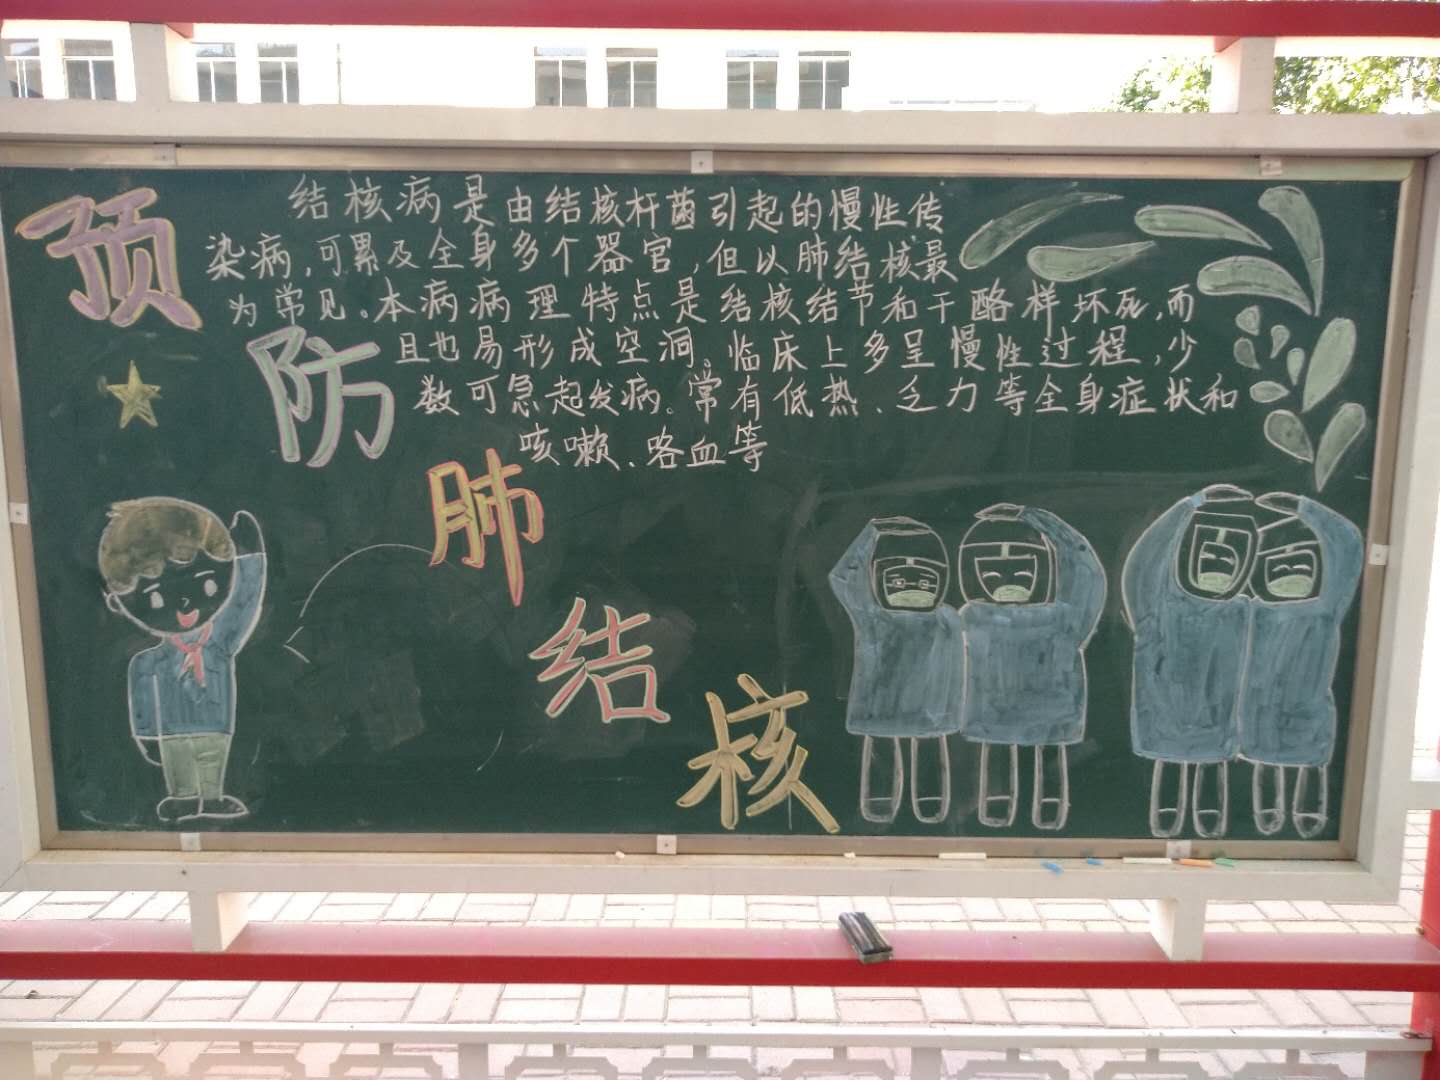 预防肺结核
结核病是由结核杆菌引起的慢性传
染病,可累及全身多个器官,但以肺结核最
为常见。本病病理特点是结核结节和干酪样坏死,而
且也易形成空洞。临床上多呈慢性过程,少
数可急起发病。常有低热、乏力等全身症状和
咳嗽、咯血等